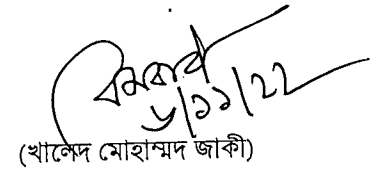 ৮/১১/২২
(খালেদ মোহাম্মদ জাকী)